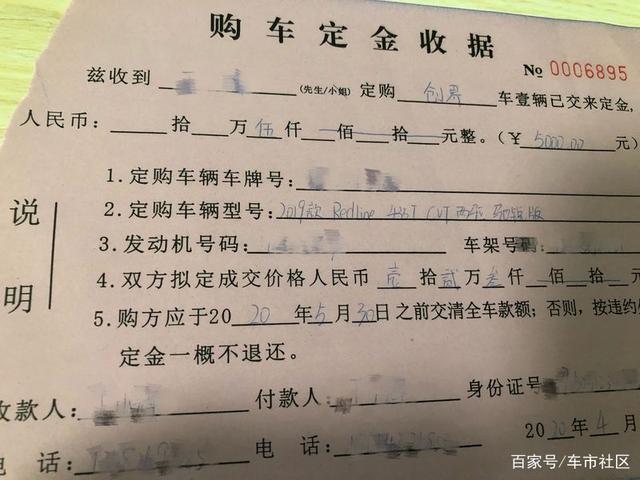 购车定金收据
No 0006895
兹收到 (先生/小姐) 定购 创界 车壹辆已交来定金,
人民币: 拾 万 伍 仟 佰 拾 元整。(¥ 5000.00 元)
说明
1.定购车辆车牌号:
2.定购车辆型号: 2019款 Redline 435T CVT 两驱 驰骋版
3.发动机号码: 车架号码:
4.双方拟定成交价格人民币 壹 拾 贰 万 叁 仟 佰 拾 元
5.购方应于20 20 年 5 月 30 日之前交清全车款额;否则,按违约
定金一概不退还。
收款人: 付款人: 身份证号
电 话: 电 话: 2020年 4 月
百家号/车市社区